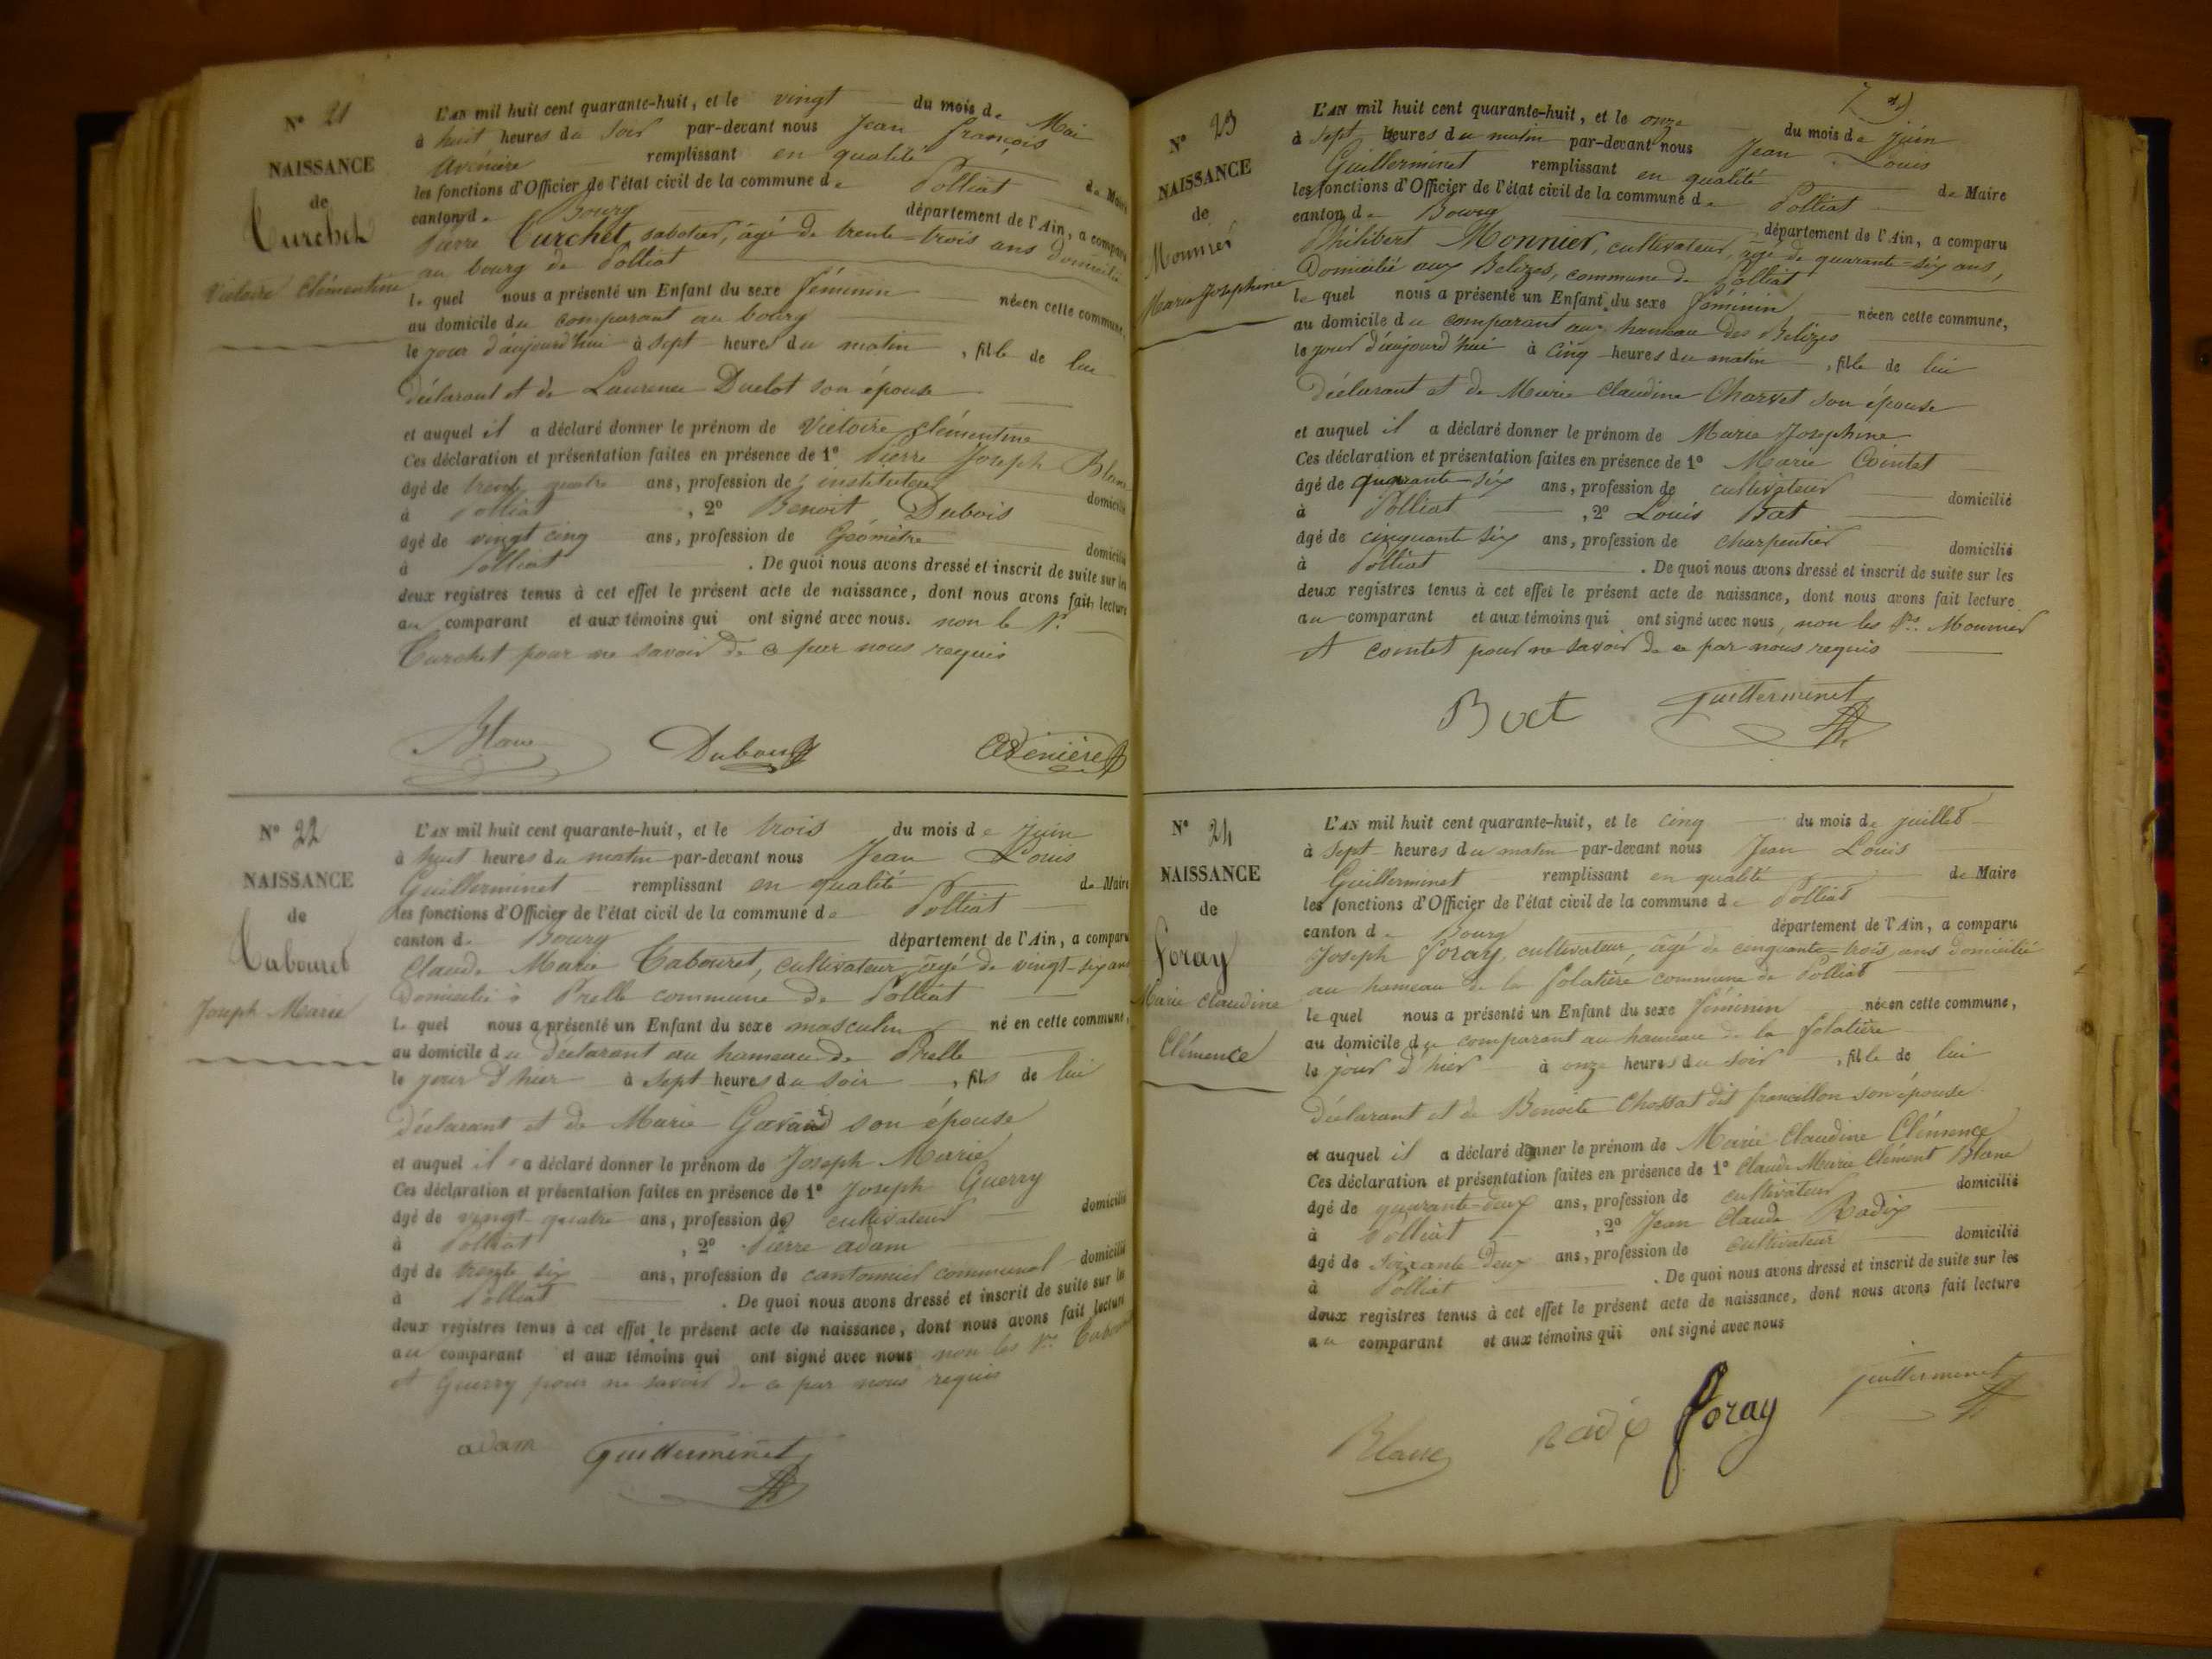 N° 21
NAISSANCE
de
Curchet
Victoire Clémentine
L'AN mil huit cent quarante-huit, et le vingt du mois de Mai
à huit heures du soir par-devant nous Jean françois
Avénière remplissant en qualité de Maire
les fonctions d'Officier de l'état civil de la commune de Polliat
canton de Bourg département de l'Ain, a comparu
Pierre Curchet, sabotier, âgé de trente-trois ans domicilié
au bourg de Polliat
le quel nous a présenté un Enfant du sexe féminin née en cette commune,
au domicile du comparant au bourg
le jour d'aujourd'hui à sept heures du matin, fille de lui
déclarant et de Laurence Duclot son épouse
et auquel il a déclaré donner le prénom de Victoire Clémentine
Ces déclaration et présentation faites en présence de 1° Pierre Joseph Blanc
âgé de trente quatre ans, profession de instituteur domicilié
à Polliat, 2° Benoit Dubois
âgé de vingt cinq ans, profession de Géomètre domicilié
à Polliat. De quoi nous avons dressé et inscrit de suite sur les
deux registres tenus à cet effet le présent acte de naissance, dont nous avons fait lecture
au comparant et aux témoins qui ont signé avec nous. non le Sr.
Curchet pour ne savoir de ce par nous requis
Blanc Dubois Avénière
N° 22
NAISSANCE
de
Tabouret
Joseph Marie
L'AN mil huit cent quarante-huit, et le trois du mois de juin
à huit heures du matin par-devant nous Jean Louis
Guillerminet remplissant en qualité de Maire
les fonctions d'Officier de l'état civil de la commune de Polliat
canton de Bourg département de l'Ain, a comparu
Claude Marie Tabouret, cultivateur, âgé de vingt-six ans
Domicilié à Prelle commune de Polliat
le quel nous a présenté un Enfant du sexe masculin né en cette commune,
au domicile du déclarant au hameau de Prelle
le jour d'hier à sept heures du soir, fils de lui
déclarant et de Marie Gavand son épouse
et auquel il a déclaré donner le prénom de Joseph Marie
Ces déclaration et présentation faites en présence de 1° Joseph Guerry
âgé de vingt-quatre ans, profession de cultivateur domicilié
à Polliat, 2° Pierre adam
âgé de trente six ans, profession de cantonnier communal domicilié
à Polliat. De quoi nous avons dressé et inscrit de suite sur les
deux registres tenus à cet effet le présent acte de naissance, dont nous avons fait lecture
au comparant et aux témoins qui ont signé avec nous non les Srs Tabouret
et Guerry pour ne savoir de ce par nous requis
adam Guillerminet
N° 23
NAISSANCE
de
Monnier
Marie Josephine
L'AN mil huit cent quarante-huit, et le onze du mois de juin
à sept heures du matin par-devant nous Jean Louis
Guillerminet remplissant en qualité de Maire
les fonctions d'Officier de l'état civil de la commune de Polliat
canton de Bourg département de l'Ain, a comparu
Philibert Monnier, cultivateur, âgé de quarante-six ans,
Domicilié aux Belizes, commune de Polliat
le quel nous a présenté un Enfant du sexe féminin née en cette commune,
au domicile du comparant aux hameau des Belizes
le jour d'aujourd'hui à cinq heures du matin, fille de lui
déclarant et de Marie Claudine Charvet son épouse
et auquel il a déclaré donner le prénom de Marie Josephine
Ces déclaration et présentation faites en présence de 1° Marie Comtet
âgé de quarante-six ans, profession de cultivateur domicilié
à Polliat, 2° Louis Bat
âgé de cinquante six ans, profession de charpentier domicilié
à Polliat. De quoi nous avons dressé et inscrit de suite sur les
deux registres tenus à cet effet le présent acte de naissance, dont nous avons fait lecture
au comparant et aux témoins qui ont signé avec nous, non les Srs. Monnier
et comtet pour ne savoir de ce par nous requis
Guillerminet
N° 24
NAISSANCE
de
foray
Marie Claudine
Clémence
L'AN mil huit cent quarante-huit, et le cinq du mois de juillet
à sept heures du matin par-devant nous Jean Louis
Guillerminet remplissant en qualité de Maire
les fonctions d'Officier de l'état civil de la commune de Polliat
canton de Bourg département de l'Ain, a comparu
Joseph foray, cultivateur, âgé de cinquante-trois ans domicilié
au hameau de la folatière commune de Polliat
le quel nous a présenté un Enfant du sexe féminin née en cette commune,
au domicile du comparant au hameau de la folatière
le jour d'hier à onze heures du soir, fille de lui
déclarant et de Benoite Chossat dit francillon son épouse
et auquel il a déclaré donner le prénom de Marie Claudine Clémence
Ces déclaration et présentation faites en présence de 1° Claude Marie Clément Blanc
âgé de quarante-deux ans, profession de cultivateur domicilié
à Polliat, 2° Jean Claude Radix
âgé de soixante deux ans, profession de cultivateur domicilié
à Polliat. De quoi nous avons dressé et inscrit de suite sur les
deux registres tenus à cet effet le présent acte de naissance, dont nous avons fait lecture
au comparant et aux témoins qui ont signé avec nous
Blanc Radix foray Guillerminet